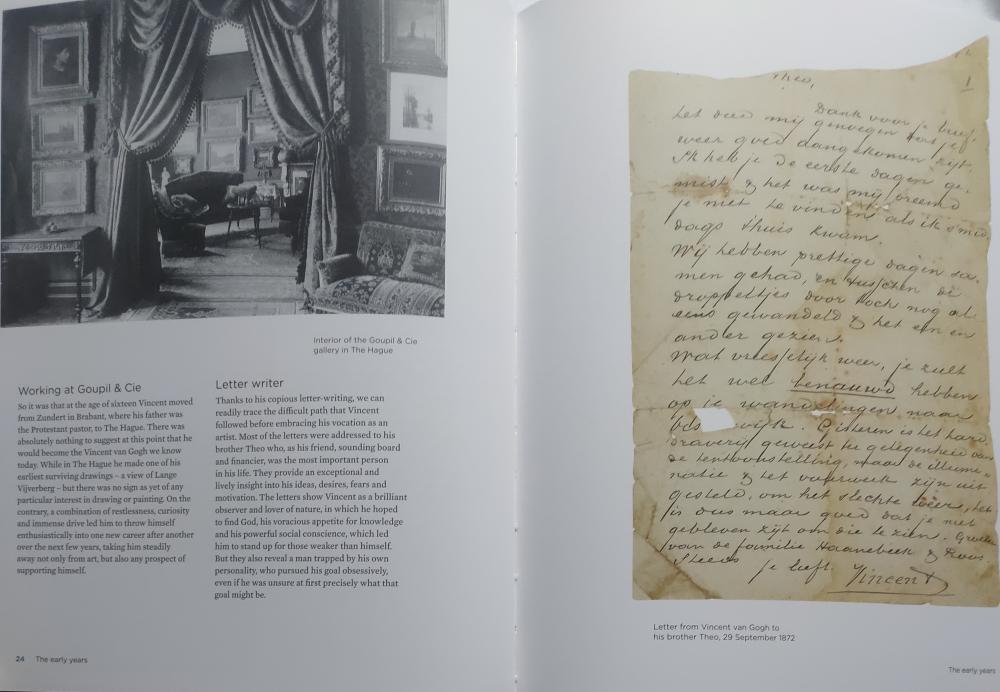 Interior of the Goupil & Cie
gallery in The Hague
Working at Goupil & Cie
So it was that at the age of sixteen Vincent moved
from Zundert in Brabant, where his father was
the Protestant pastor, to The Hague. There was
absolutely nothing to suggest at this point that he
would become the Vincent van Gogh we know
today. While in The Hague he made one of his
earliest surviving drawings – a view of Lange
Vijverberg – but there was no sign as yet of any
particular interest in drawing or painting. On the
contrary, a combination of restlessness, curiosity
and immense drive led him to throw himself
enthusiastically into one new career after another
over the next few years, taking him steadily
away not only from art, but also any prospect of
supporting himself.
Letter writer
Thanks to his copious letter-writing, we can
readily trace the difficult path that Vincent
followed before embracing his vocation as an
artist. Most of the letters were addressed to his
brother Theo who, as his friend, sounding board
and financier, was the most important person
in his life. They provide an exceptional and
lively insight into his ideas, desires, fears and
motivation. The letters show Vincent as a brilliant
observer and lover of nature, in which he hoped
to find God, his voracious appetite for knowledge
and his powerful social conscience, which led
him to stand up for those weaker than himself.
But they also reveal a man trapped by his own
personality, who pursued his goal obsessively,
even if he was unsure at first precisely what that
goal might be.
24 The early years
1
Theo,
Dank voor je brief,
het deed mij genoegen dat je
weer goed aangekomen zijt.
Ik heb je de eerste dagen ge-
mist & het was mij vreemd
je niet te vinden als ik s'mid
dags t'huis kwam.
Wij hebben prettige dagen sa-
men gehad, en tusschen de
droppeltjes door toch nog al
eens gewandeld & het een en
ander gezien.
Wat vreesselijk weer, je zult
het wel benauwd hebben
op je wandelingen naar
wijk. Gisteren is het hard
draverij geweest ter gelegenheid van
de tentoonstelling, maar de illumi-
natie & het vuurwerk zijn uit
gesteld, om het slechte weer, het
is dus maar goed dat je niet
gebleven zijt om die te zien. Groeten
van de familie Haanebeek & Roos.
Steeds
je liefh. Vincent
Letter from Vincent van Gogh to
his brother Theo, 29 September 1872
The early years